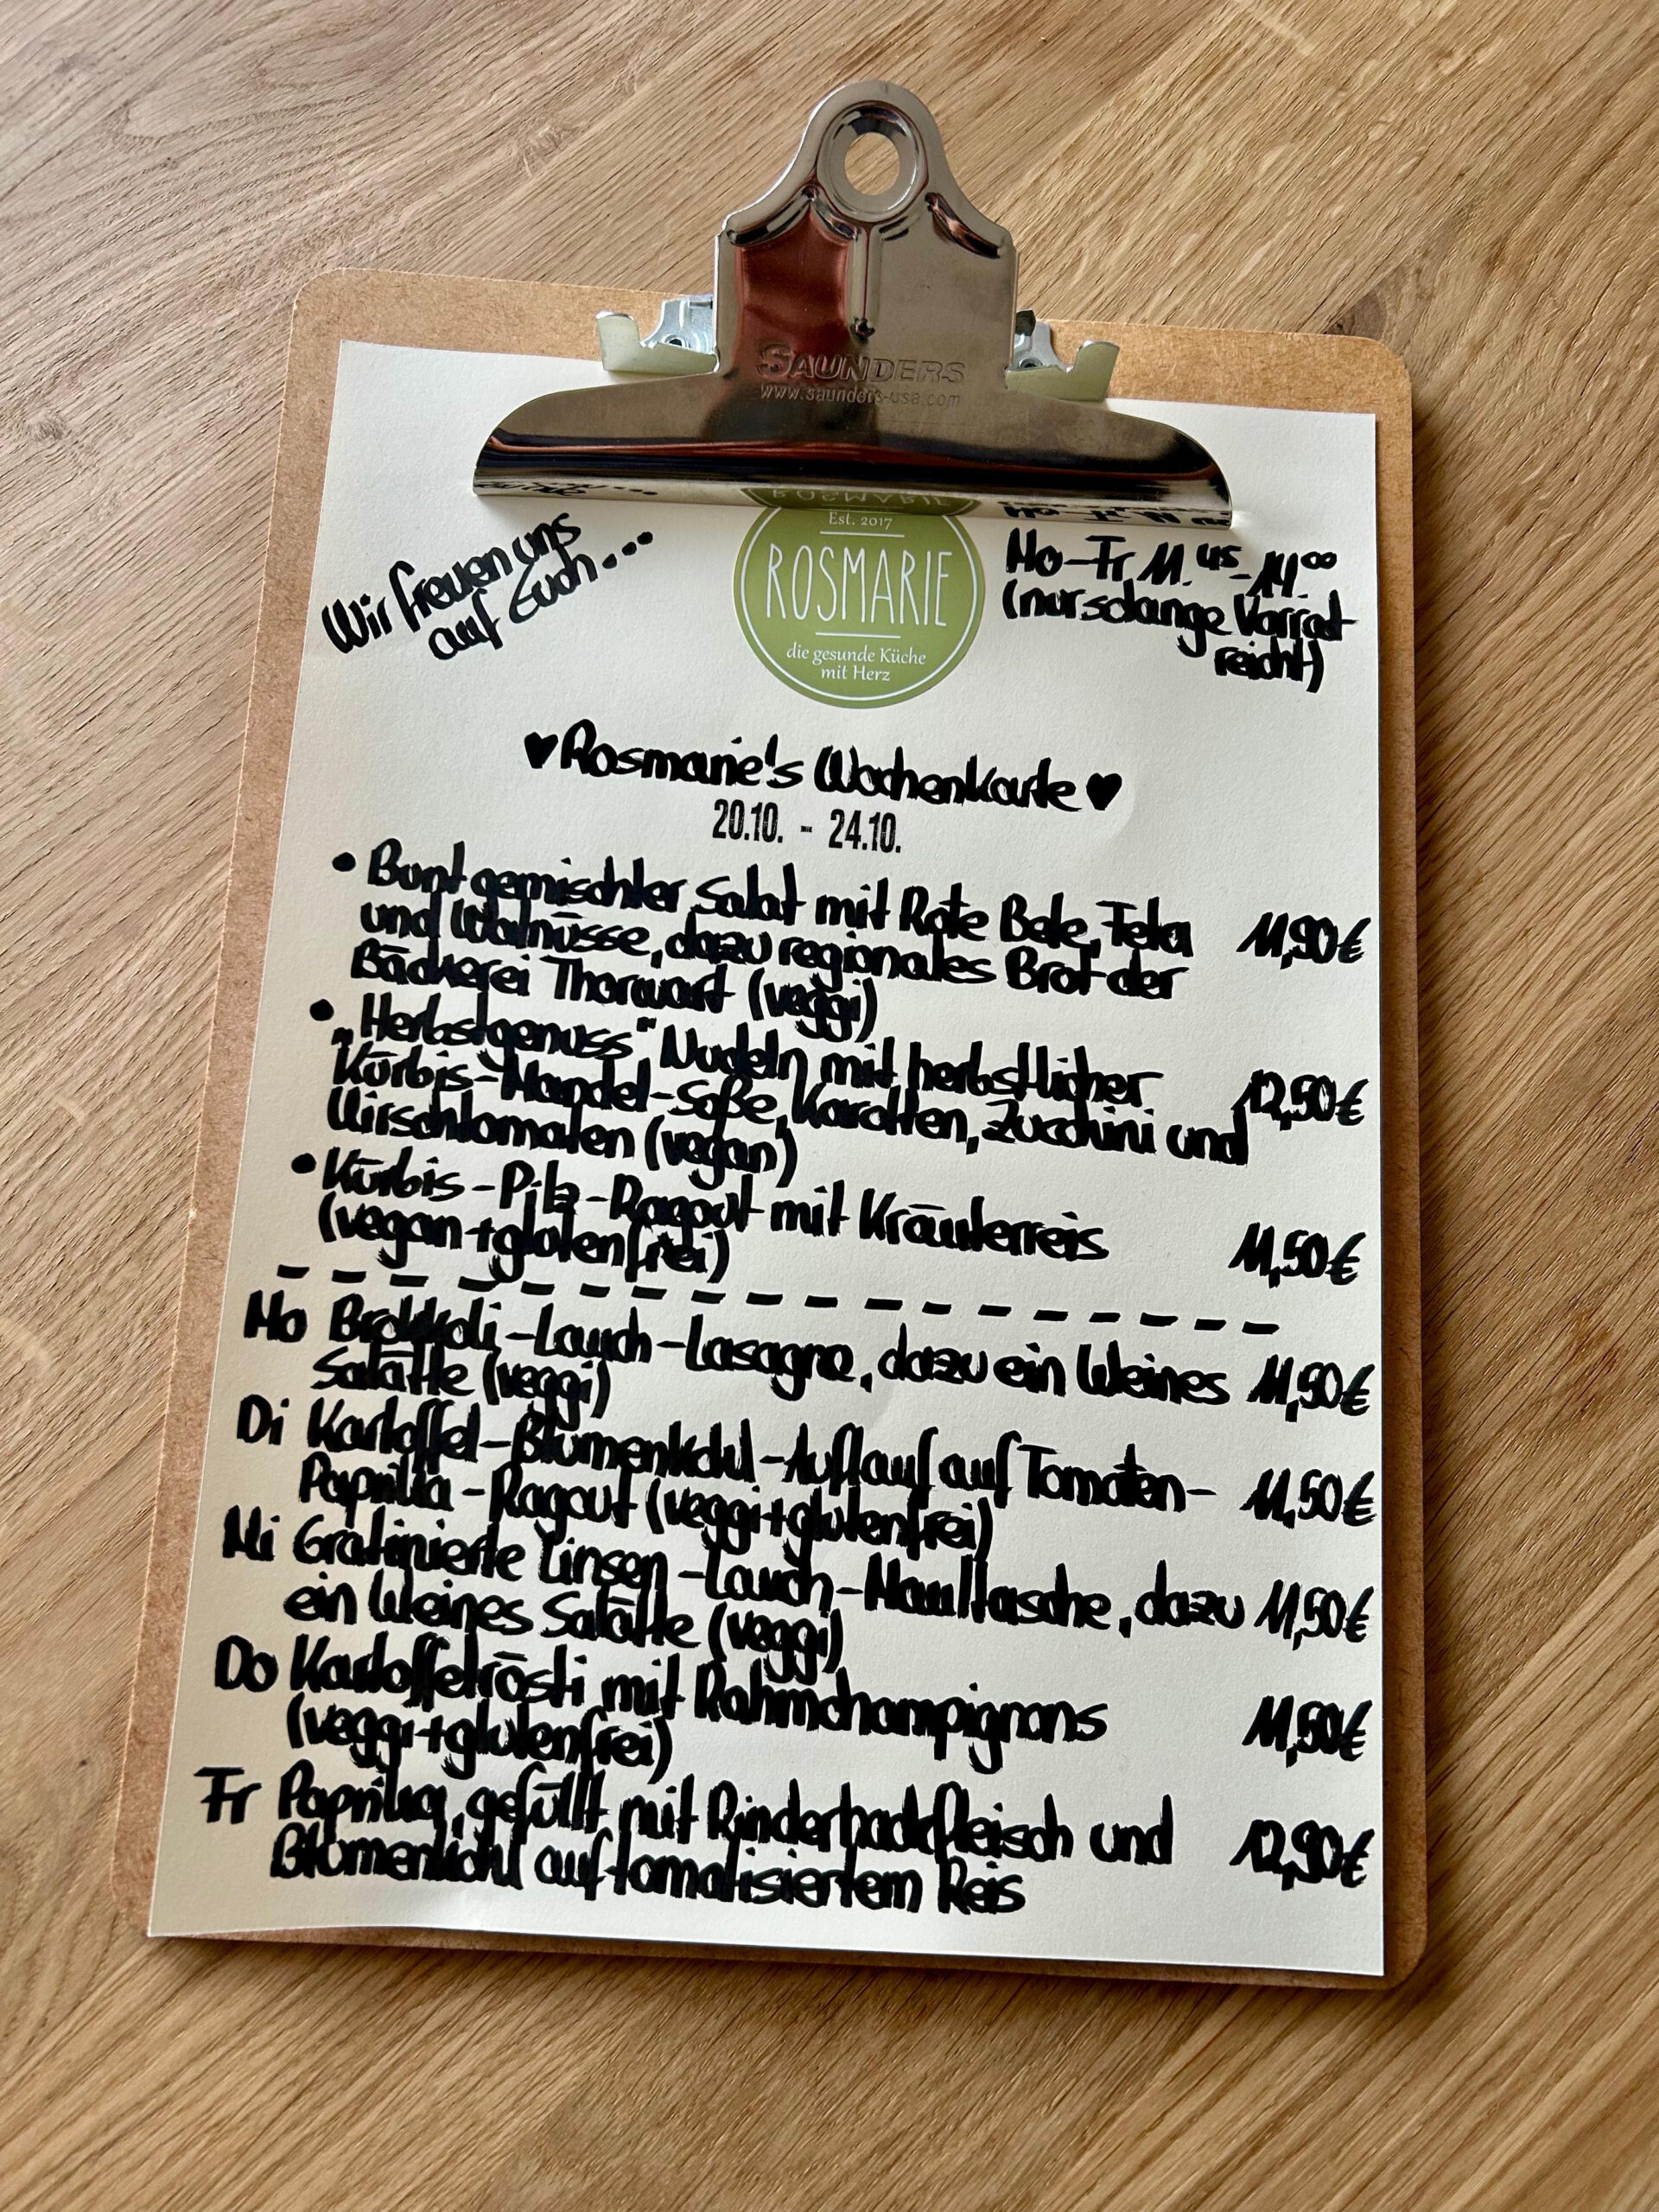 SAUNDERS
www.saunders-usa.com
Wir freuen uns
auf Euch...
Est. 2017
ROSMARIE
die gesunde Küche
mit Herz
Mo-Fr 11.45-14.00
(nur solange Vorrat
reicht)
♥Rosmarie's Wochenkarte♥
20.10. - 24.10.
• Bunt gemischter Salat mit Rote Bete, Feta 11,90€
und Walnüsse, dazu regionales Brot der
Bäckerei Thorwart (veggi)
• „Herbstgenuss" Nudeln mit herbstlicher 12,50€
Kürbis-Mandel-Soße, Karotten, Zucchini und
Kirschtomaten (vegan)
• Kürbis-Pilz-Ragout mit Kräuterreis 11,50€
(vegan+glutenfrei)
Mo Brokkoli-Lauch-Lasagne, dazu ein kleines 11,50€
Salätle (veggi)
Di Kartoffel-Blumenkohl-Auflauf auf Tomaten- 11,50€
Paprika-Ragout (veggi+glutenfrei)
Mi Gratinierte Linsen-Lauch-Maultasche, dazu 11,50€
ein kleines Salätle (veggi)
Do Kartoffelrösti mit Rahmchampignons 11,50€
(veggi+glutenfrei)
Fr Paprika, gefüllt mit Rinderhackfleisch und 12,90€
Blumenkohl auf tomatisiertem Reis